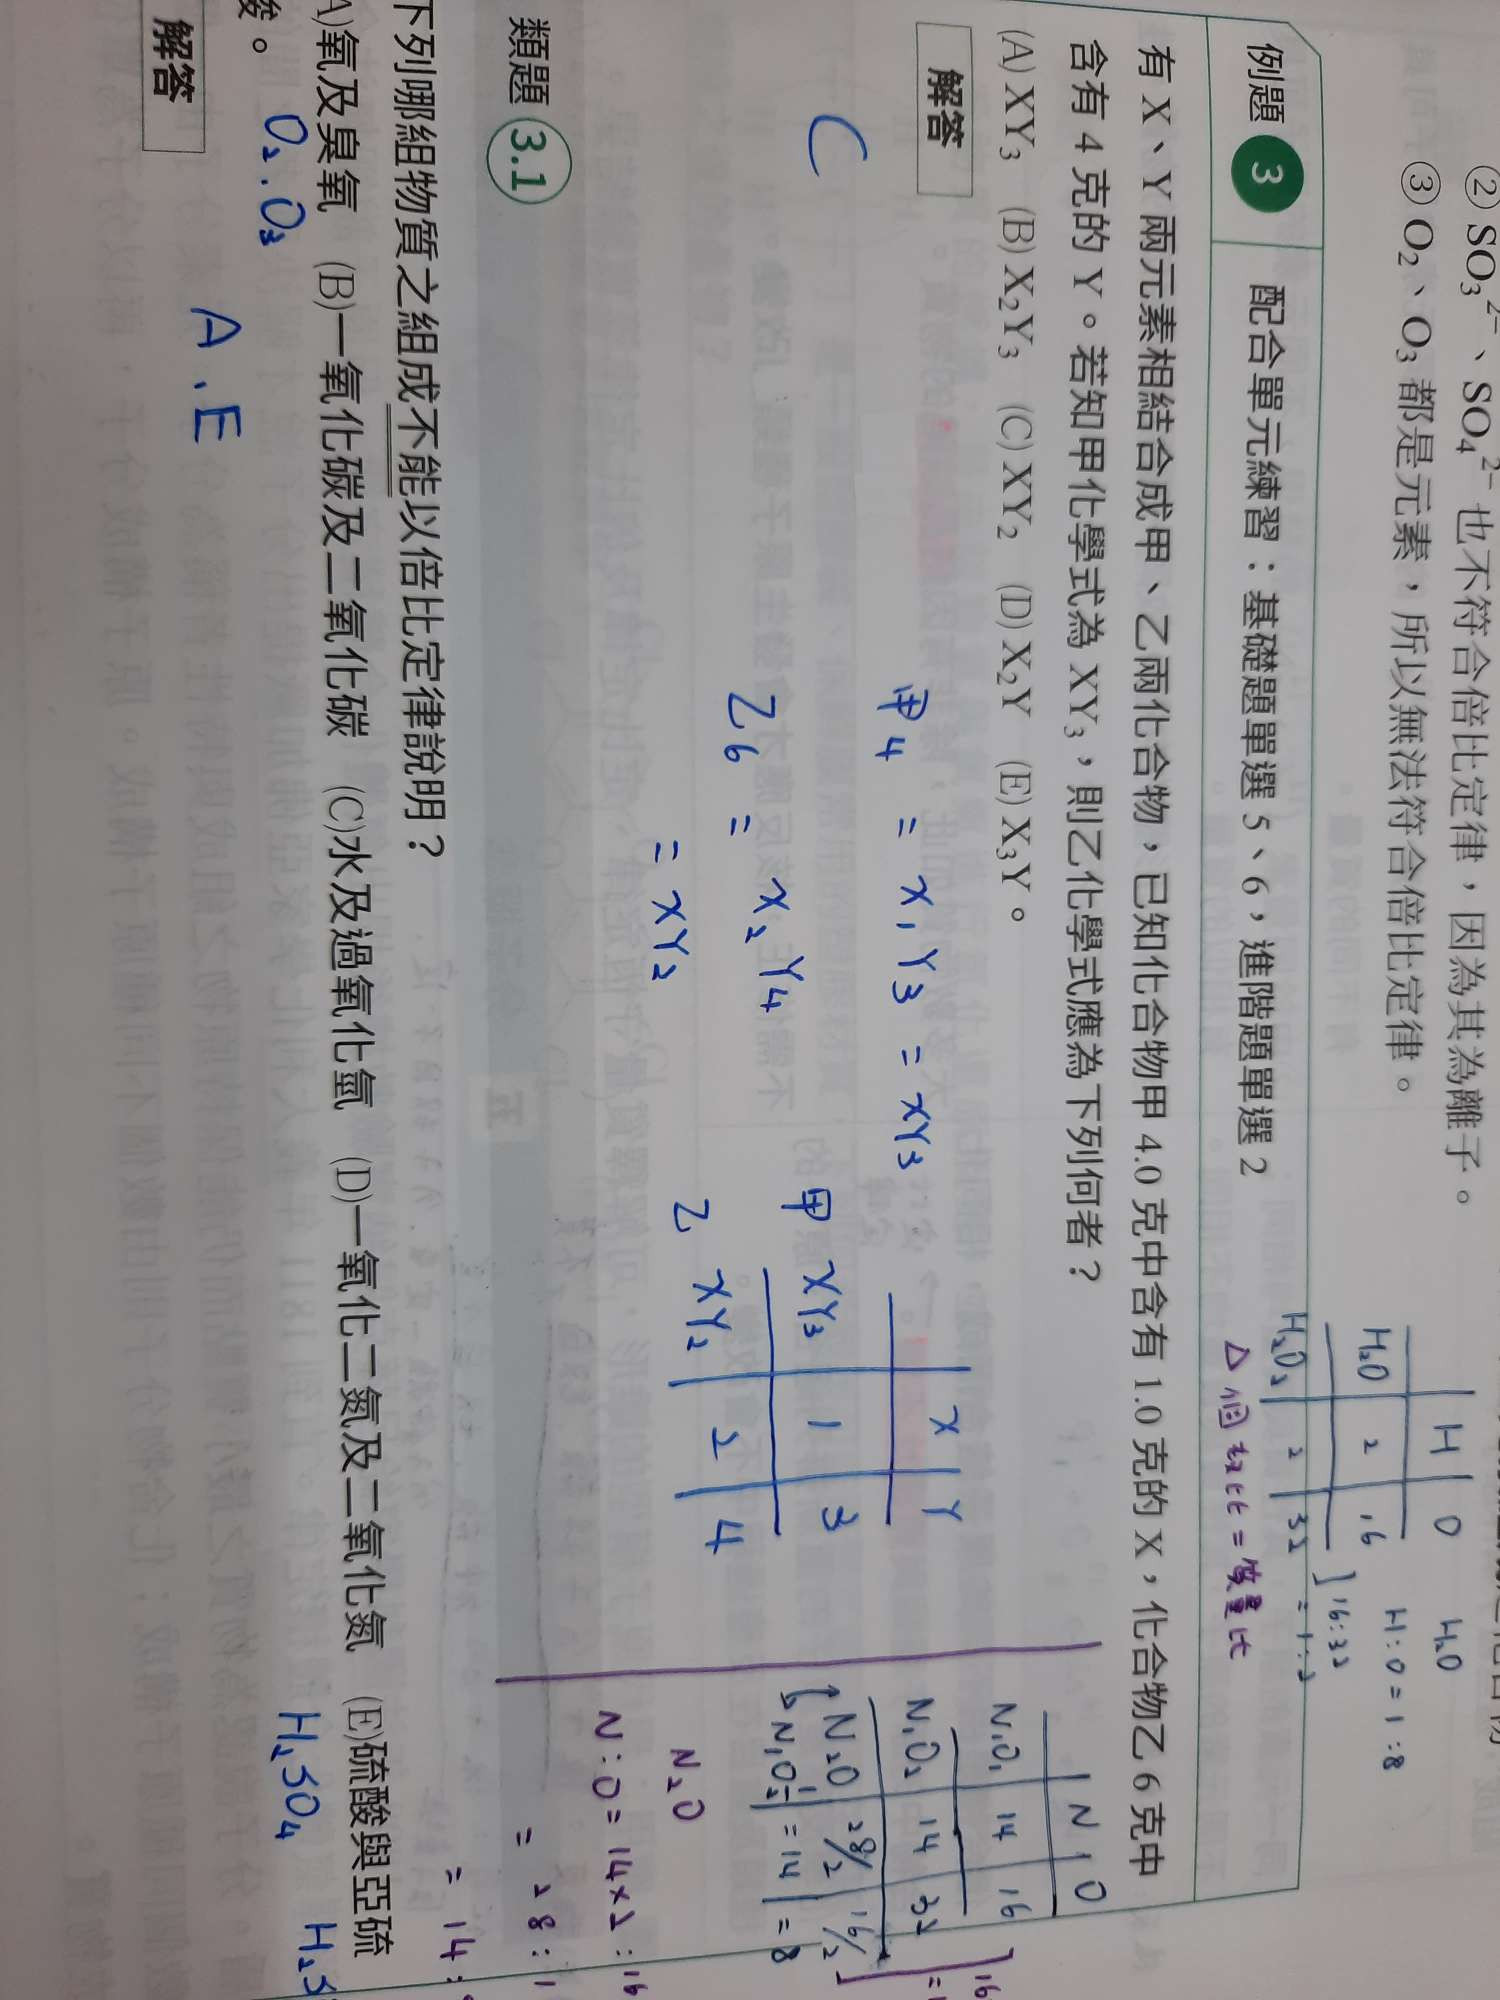 ② SO₃²⁻、SO₄²⁻ 也不符合倍比定律，因為其為離子。
③ O₂、O₃ 都是元素，所以無法符合倍比定律。
H O H₂O
H₂O 2 16 H:O=1:8
H₂O₂ 2 32 ]16:32
=1:2
△個數比=質量比
例題 3 配合單元練習：基礎題單選 5、6，進階題單選 2
有 X、Y 兩元素相結合成甲、乙兩化合物，已知化合物甲 4.0 克中含有 1.0 克的 X，化合物乙 6 克中
含有 4 克的 Y。若知甲化學式為 XY₃，則乙化學式應為下列何者？
(A) XY₃ (B) X₂Y₃ (C) XY₂ (D) X₂Y (E) X₃Y。
解答
C
甲4 = X₁Y₃ = XY₃
乙6 = X₂Y₄
= XY₂
X Y
甲 XY₃ 1 3
乙 XY₂ 2 4
N O
N₁O₁ 14 16
N₁O₂ 14 32
N₂O 28/2 16/2
N₁O½ =14 =8
N₂O
N:O=14×2:16
= 28:1
= 14:
類題 3.1
下列哪組物質之組成不能以倍比定律說明？
A)氧及臭氧 (B)一氧化碳及二氧化碳 (C)水及過氧化氫 (D)一氧化二氮及二氧化氮 (E)硫酸與亞硫
酸。
O₂、O₃ H₂SO₄ H₂S
A、E
解答